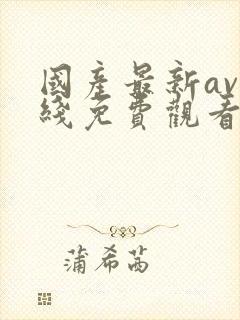 國產最新av
綫免費觀看
蒲希茜